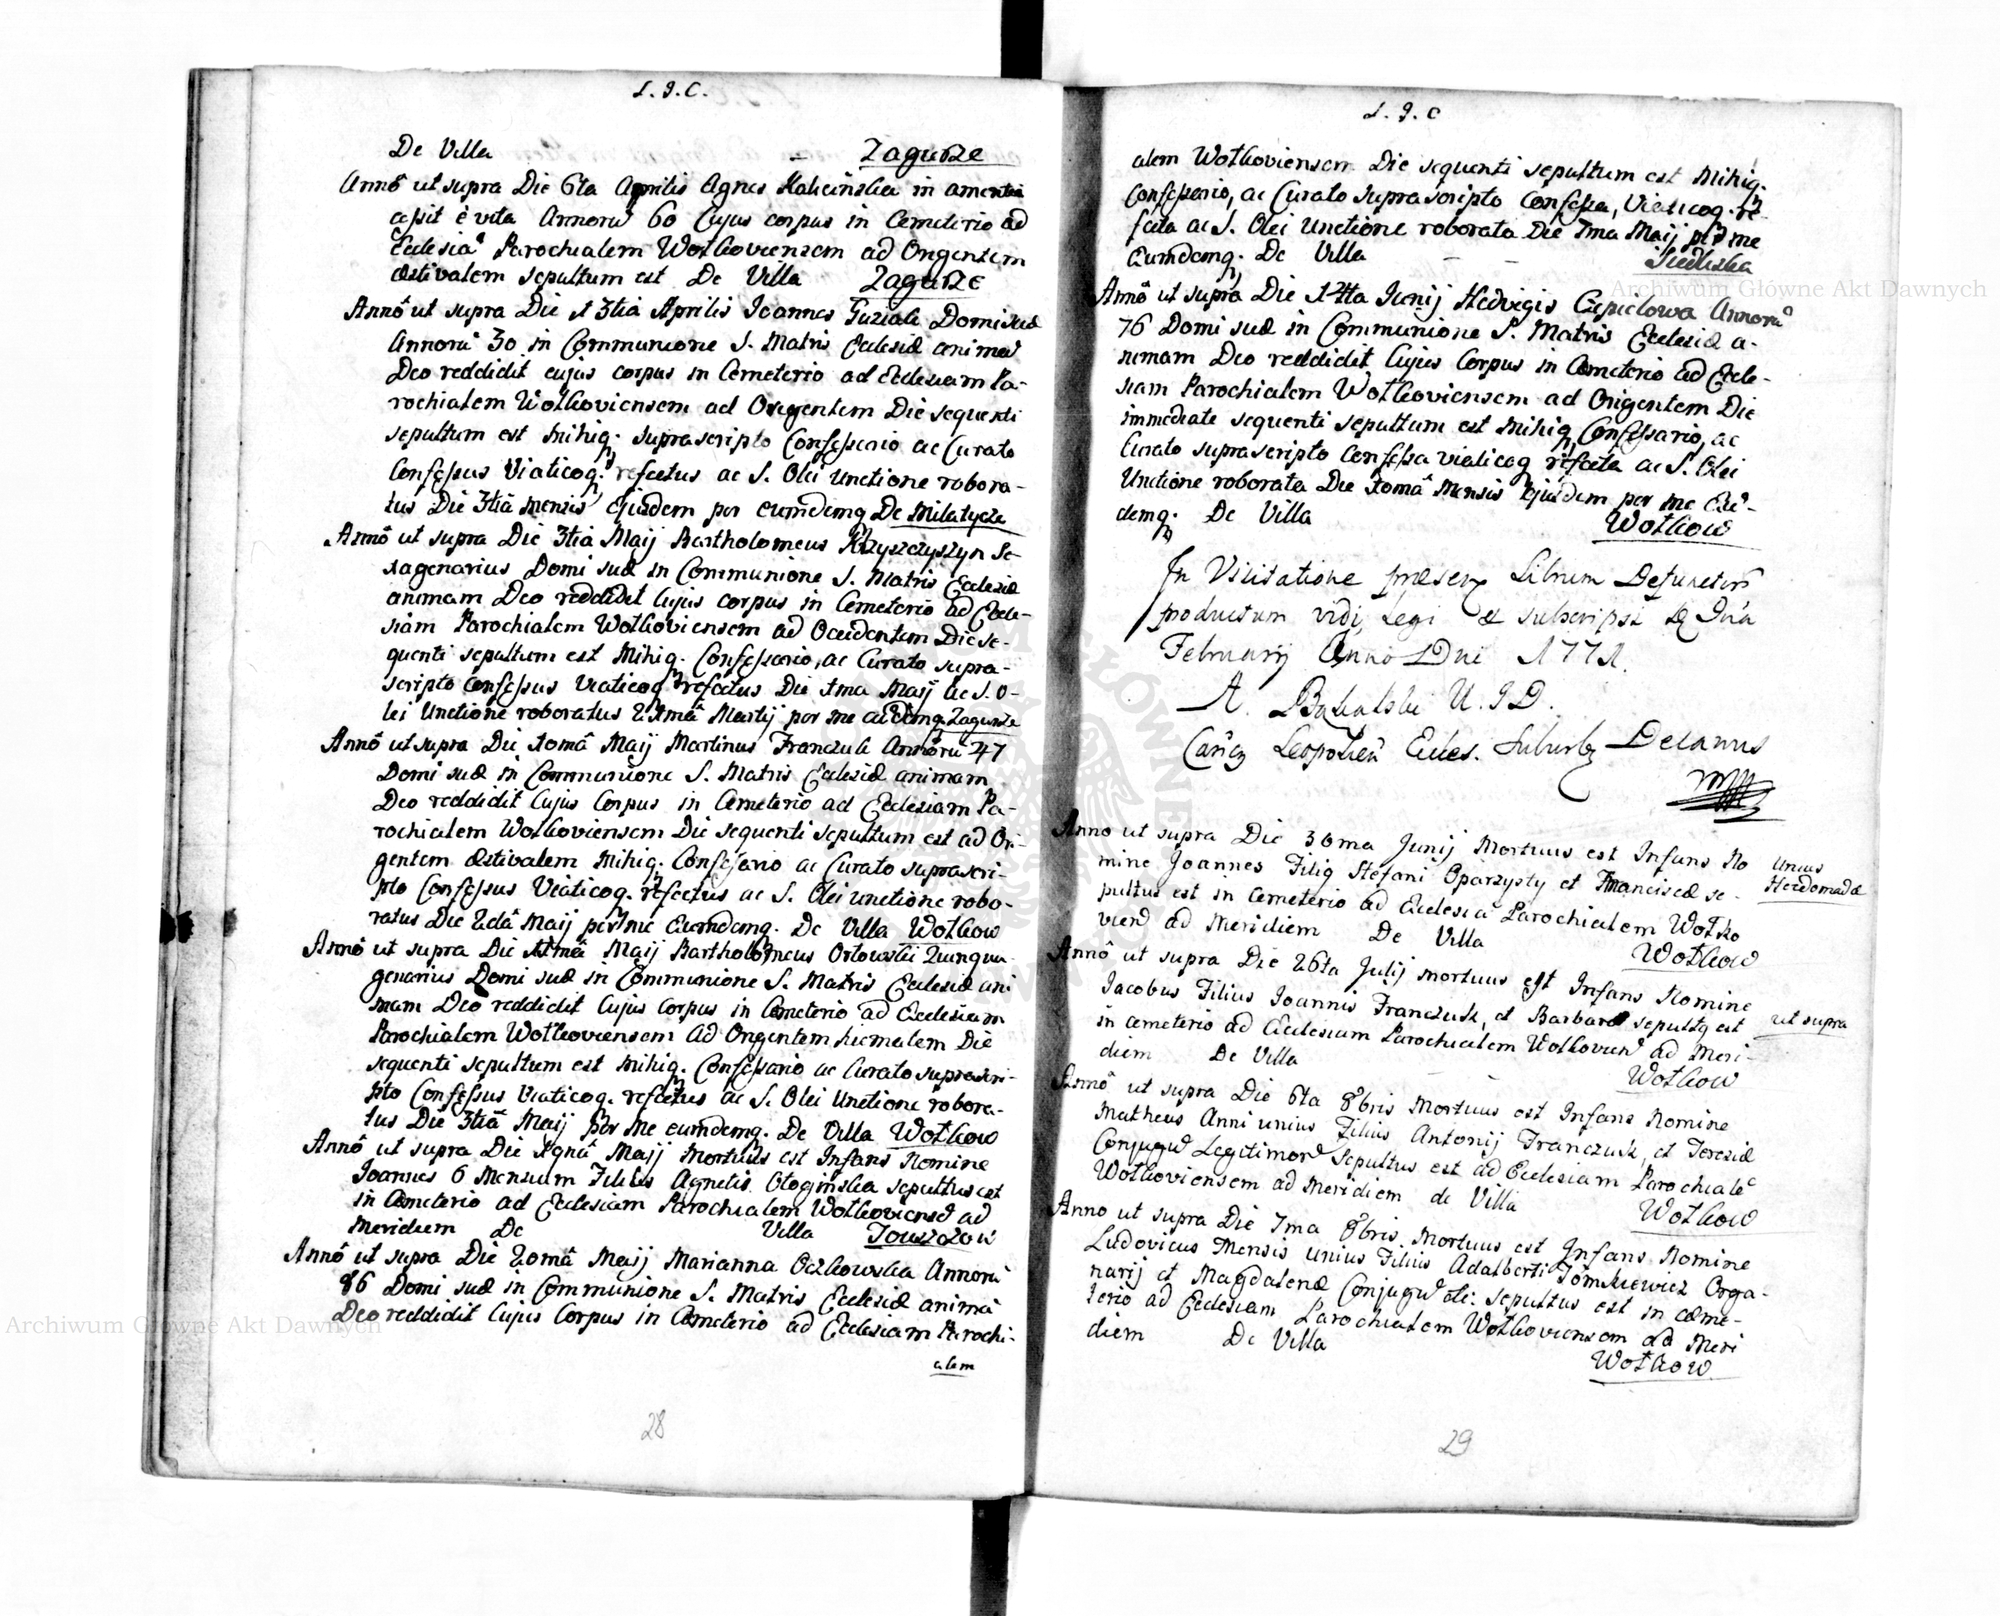 L. J. C.
De Villa – Zagurze
Annô ut supra Die 6ta Aprilis Agnes Halicinska in amentia
cessit è vita Annorũ 60 Cujus corpus in Cemeterio ad
Ecclesiã Parochialem Wołkoviensem ad Origentem
æstivalem sepultum est De Villa Zagurze
Annô ut supra Die 13tia Aprilis Joannes Guziak Domi suæ
Annorũ 30 in Communione S. Matris Ecclesiæ animã
Deo reddidit cujus corpus in Cemeterio ad Ecclesiam Pa-
rochialem Wołkoviensem ad Origentem Die sequenti
sepultum est mihiq. suprascripto Confessario ac Curato
Confessus Viaticoq. refectus ac S. Olei Unctione robora-
tus Die 3tiâ mensis Ejusdem per eumdemq De Milatycze
Annô ut supra Die 3tia Maij Bartholomeus Krzyszczyszyn Se-
xagenarius Domi suæ in Communione S. Matris Ecclesiæ
animam Deo reddidit Cujus corpus in Cemeterio ad Eccle-
siam Parochialem Wołkoviensem ad Occidentem Die se-
quenti sepultum est Mihiq. Confessario, ac Curato supra-
scripto Confessus Viaticoq refectus Die 1ma Maij ac S. O-
lei Unctione roboratus Martij per me eumdemq. Zagurze
Annô ut supra Die 10mâ Maij Martinus Franczuk Annorũ 47
Domi suæ in Communione S. Matris Ecclesiæ animam
Deo reddidit Cujus Corpus in Cemeterio ad Ecclesiam Pa-
rochialem Wołkoviensem Die sequenti sepultum est ad Ori-
gentem æstivalem mihiq. Confessario ac Curato suprascri-
pto Confessus Viaticoq. refectus ac S. Olei unctione robo-
ratus Die 2dâ Maij per me Eumdemq. De Villa Wołkow
Annô ut supra Die Maij Bartholomeus Orłowski Quinqua-
genarius Domi suæ in Communione S. Matris Ecclesiæ ani
mam Deo reddidit Cujus Corpus in Cemeterio ad Ecclesiam
Parochialem Wołkoviensem ad Origentem hiemalem Die
sequenti sepultum est mihiq. Confessario ac Curato suprascri-
pto Confessus Viaticoq. refectus ac S. Olei Unctione robora-
tus Die 3tiâ Maij per me eumdemq. De Villa Wołkow
Annô ut supra Die Maij Mortuus est Infans Nomine
Joannes 6 Mensium Filius Agnetis sepultus est
in Cemeterio ad Ecclesiam Parochialem Wołkoviensẽ ad
meridiem De Villa
Annô ut supra Die 20mâ Maij Marianna Oczkowska Annorũ
86 Domi suæ in Communione S. Matris Ecclesiæ animã
Deo reddidit Cujus Corpus in Cemeterio ad Ecclesiam Parochi-
alem
28
L. J. C
alem Wołkoviensem Die sequenti sepultum est Mihiq.
Confessario, ac Curato suprascripto Confessa, Viaticoq. re-
fecta ac S. Olei Unctione roborata Die 7ma Maij per me
Eumdemq. De Villa – – Siedliska
Annô ut supra Die 12tta Junij Hedvigis Czepielowa Annorũ
76 Domi suæ in Communione S. Matris Ecclesiæ a-
nimam Deo reddidit Cujus Corpus in Cemeterio ad Eccle-
siam Parochialem Wołkoviensem ad Origentem Die
immediate sequenti sepultum est mihiq Confessario, ac
Curato suprascripto Confessa viaticoq refecta ac S. Olei
Unctione roborata Die 10mâ Mensis Ejusdem per me Eũ-
demq. De Villa Wołkow
In Visitatione præsens Librum Defunctorũ
productum vidi, Legi & subscripsi
Februarij Anno Dni 1771.
A. Bąkalski U. J. D.
Leopolien Eccles. Suburb Decanus
mpp
Anno ut supra Die 30ma Junij Mortuus est Infans No Unius
mine Joannes Filiq Stefani Oparzysty et Franciscæ se- Hebdomadæ
pultus est in Cemeterio ad Ecclesiã Parochialem Wołko
vien ad Meridiem De Villa Wołkow
Annô ut supra Die 26ta Julij mortuus est Infans Nomine
Jacobus Filius Joannis Franczuk, et Barbaræ sepultq est ut supra
in cemeterio ad Ecclesiam Parochialem Wołkovien ad Meri-
diem De Villa – – Wołkow
Annô ut supra Die 6ta 8bris Mortuus est Infans Nomine
Matheus Anni unius Filius Antonij Franczuk, et Teresiæ
Conjugũ Legitimorũ Sepultus est ad Ecclesiam Parochialẽ
Wołkoviensem ad Meridiem de Villa Wołkow
Anno ut supra Die 7ma 8bris Mortuus est Infans Nomine
Ludovicus Mensis unius Filius Adalberti Tomkiewicz Orga-
narij et Magdalenæ Conjugũ sepultus est in cæme-
terio ad Ecclesiam Parochialem Wołkoviensem ad Meri
diem De Villa Wołkow
29
Archiwum Główne Akt Dawnych
Archiwum Główne Akt Dawnych